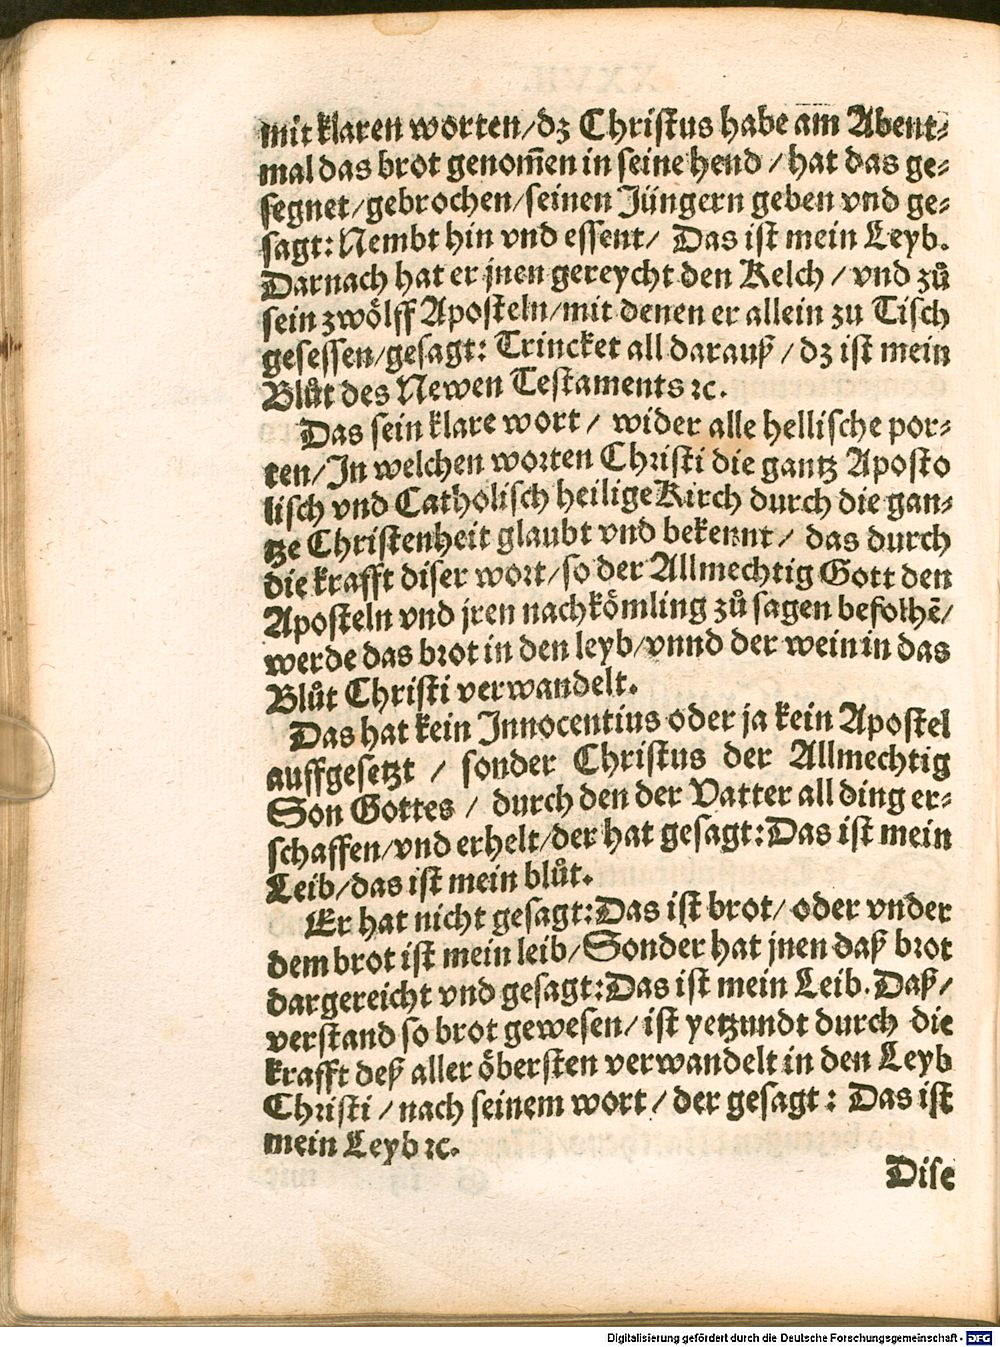 mit klaren worten/dz Christus habe am Abent⸗
mal das brot genom̄en in seine hend / hat das ge⸗
segnet/gebrochen/seinen Jüngern geben vnd ge⸗
sagt: Nembt hin vnd essent/ Das ist mein Leyb.
Darnach hat er jnen gereycht den Kelch / vnd zů
sein zwölff Aposteln/mit denen er allein zu Tisch
gesessen/gesagt: Trincket all darauß / dz ist mein
Blůt des Newen Testaments ꝛc.
Das sein klare wort / wider alle hellische por⸗
ten/In welchen worten Christi die gantz Aposto
lisch vnd Catholisch heilige Kirch durch die gan⸗
tze Christenheit glaubt vnd bekennt/ das durch
die krafft diser wort/so der Allmechtig Gott den
Aposteln vnd jren nachkömling zů sagen befolhē/
werde das brot in den leyb/vnnd der wein in das
Blůt Christi verwandelt.
Das hat kein Innocentius oder ja kein Apostel
auffgesetzt / sonder Christus der Allmechtig
Son Gottes / durch den der Vatter all ding er⸗
schaffen/vnd erhelt/der hat gesagt: Das ist mein
Leib/das ist mein blůt.
Er hat nicht gesagt: Das ist brot/ oder vnder
dem brot ist mein leib/Sonder hat jnen daß brot
dargereicht vnd gesagt: Das ist mein Leib. Daß/
verstand so brot gewesen/ ist yetzundt durch die
krafft deß aller öbersten verwandelt in den Leyb
Christi / nach seinem wort / der gesagt : Das ist
mein Leyb ꝛc.
Dise
Digitalisierung gefördert durch die Deutsche Forschungsgemeinschaft - DFG